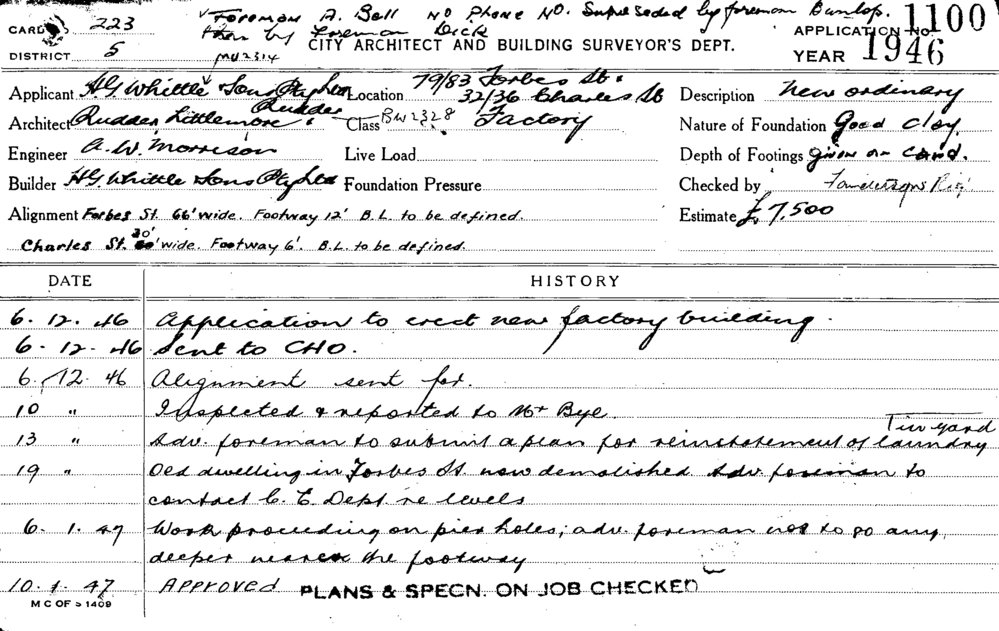 Foreman A. Bell No Phone No. Superseded by foreman Dunlop.
then by Foreman Dick
CARD No. 223
DISTRICT 5
MU2314
CITY ARCHITECT AND BUILDING SURVEYOR'S DEPT.
APPLICATION No. 1100
YEAR 1946
Applicant H.G. Whittle & Sons Pty Ltd
Location 79/83 Forbes St.
32/36 Charles St
Description New ordinary
Architect Rudder Littlemore & Rudder
Class BW2328 Factory
Nature of Foundation Good clay
Engineer A.W. Morrison
Live Load
Depth of Footings given on card.
Builder H.G. Whittle & Sons Pty Ltd
Foundation Pressure
Checked by
Alignment Forbes St. 66' wide. Footway 12' B.L. to be defined.
Estimate £7,500
Charles St. 30' wide. Footway 6'. B.L. to be defined.
DATE HISTORY
6. 12. 46 Application to erect new factory building.
6. 12. 46 Sent to CHO.
6. 12. 46 Alignment sent for.
10 " Inspected & reported to Mr Bye.
13 " Adv. foreman to submit a plan for reinstatement of laundry
in yard
19 " Old dwelling in Forbes St. now demolished Adv. foreman to
contact C. E. Dept re levels
6. 1. 47 Work proceeding on pier holes; adv. foreman not to go any
deeper nearer the footway
10. 1. 47 APPROVED PLANS & SPECN. ON JOB CHECKED
M C OF S 1409